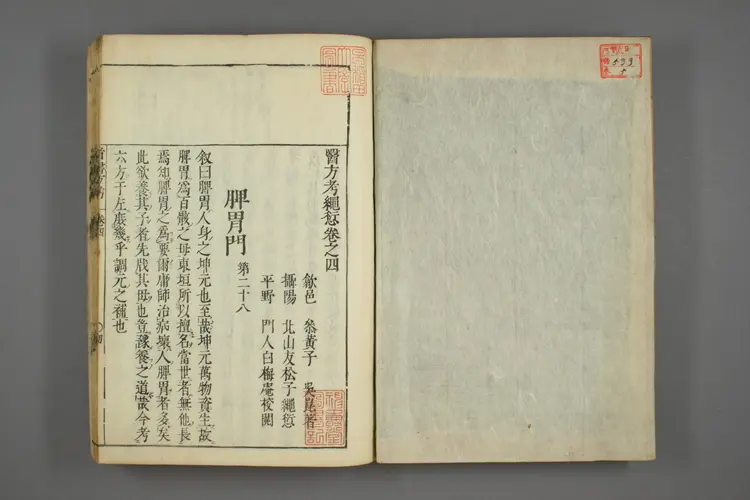 醫方考繩愆卷之四
歙邑 叅黃子 吳崑著
攝陽 北山友松子繩愆
平野 門人白梅菴校閱
脾胃門 第二十八
叙曰脾胃人身之坤元也至哉坤元萬物資生故
脾胃爲百骸之母東垣所以擅名當世者無他長
焉知脾胃之爲要爾庸師治病壞人脾胃者多矣
此欲養其子者先戕其母也豈頤養之道哉今考
六方于左庶幾乎調元之補也
卷四